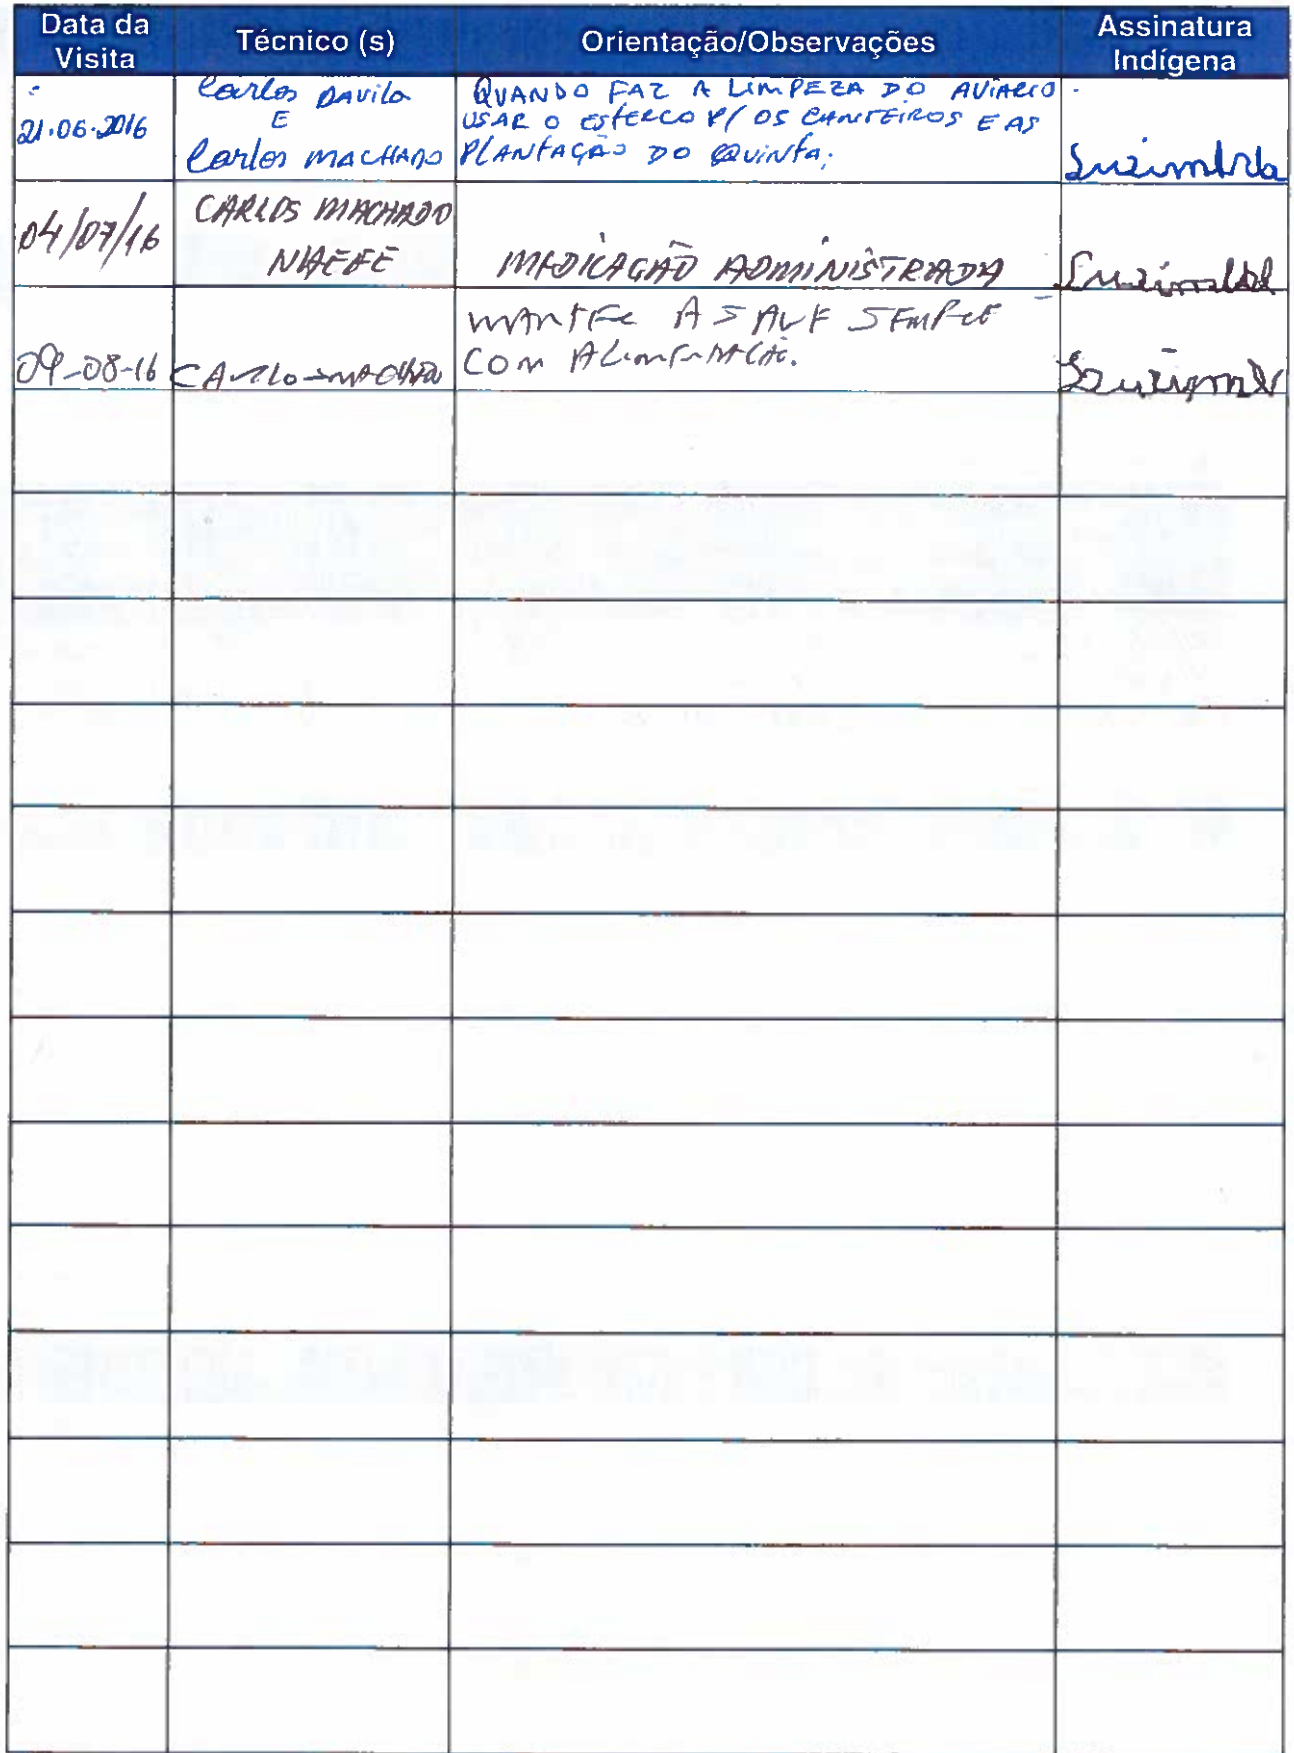 Data da Visita
Técnico (s)
Orientação/Observações
Assinatura Indígena
21.06.2016
Carlos DAvila
E
Carlos MACHADO
QUANDO FAZ A LIMPEZA DO AVIARIO
USAR O ESTERCO P/ OS CANTEIROS E AS
PLANTAÇÃO DO QUINTA.
04/07/16
CARLOS MACHADO
NAEFE
MEDICAÇÃO ADMINISTRADA
09-08-16
CARLOS MACHADO
MANTER AS AVE SEMPRE
COM ALIMENTAÇÃO.